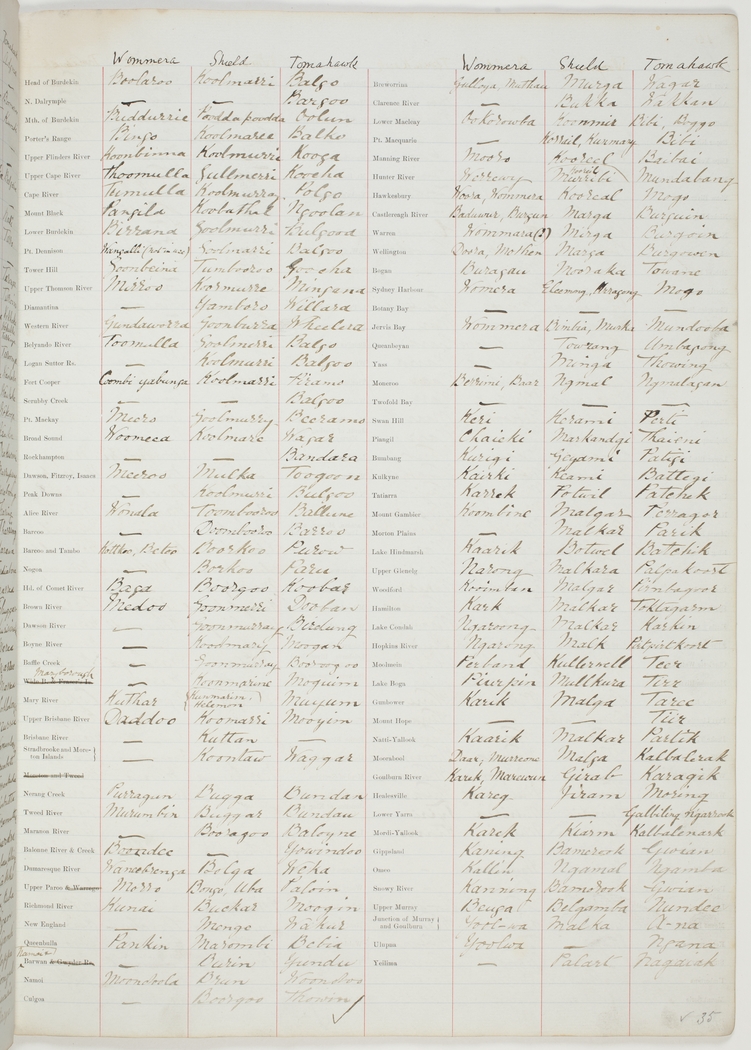 Wommera Shield Tomahawk Wommera Shield Tomahawk
Head of Burdekin Boolaroo Koolmarri Balgo
N. Dalrymple — Bargoo
Mth. of Burdekin Oolun
Porter's Range Bingo Koolmaree Balko
Upper Flinders River Koonbinna Koolmurri Kooga
Upper Cape River Thoomulla Gullmerri Koocha
Cape River Tumulla Koolmurray Tolgo
Mount Black Pangila Koobathal Ngoolan
Lower Burdekin Birrana Goolmurri Bulgood
Pt. Denison Goolmarri Balgoo
Tower Hill Goonbeina Tumbooroo Goocha
Upper Thomson River Mirroo Koormurre Mingana
Diamantina — Yamboro Willara
Western River Goonburra Wheelera
Belyando River Toomulla Goolmerri Balgo
Logan Suttor Rs. — Koolmurri Balgoo
Fort Cooper Coombi yabunga Koolmarri
Scrubby Creek Balgoo
Pt. Mackay Meero Goolmurry Beeramo
Broad Sound Woomeea Koolmare Wagar
Rockhampton Bandara
Dawson, Fitzroy, Isaacs Meeroo Mulka Toogoon
Peak Downs — Koolmurri Bulgoo
Alice River Wonala Toombooroo Ballune
Barcoo — Doombooro Barroo
Barcoo and Tambo Boorkoo Purow
Nogoa — Borkoo Paru
Hd. of Comet River Baga Boorgoo Koobar
Brown River Medoo Goonmurri Dooban
Dawson River — Goonmurray Birdung
Boyne River — Koodmary Moogan
Baffle Creek — Goonmurray Booroogoo
Maryborough — Koonmarine Moguim
Mary River Kuthar Kunmarim, Helemon Muyum
Upper Brisbane River Daddoo Koomarri Mooyum
Brisbane River — Kuttan —
Stradbroke and More-
ton Islands — Koontaw Waggar
Nerang Creek Purragun Bugga Bundan
Tweed River Murumbin Buggar Bundan
Maranoa River Booragoo Baloyne
Balonne River & Creek — Gowindoo
Dumaresque River Belga Weka
Upper Paroo Morro Bongo, Uba Paloin
Richmond River Kunai Buckar Moogin
New England — Mongo Wakur
Queenbulla Pankin Marombi Bebia
Barwan — Burin Gundu
Namoi Moonoobola Brun Woonoboo
Culgoa — Boorgoo Thowin
Brewarrina Gulloya, Muthau Murga Wagar
Clarence River — Bukka Wakkan
Lower Macleay Ookorowba Koonmir Bibi, Boggo
Pt. Macquarie Korreil, Kurmary Bibi
Manning River Mooro Kooreel Baibai
Hunter River Werewy Murribi Mundabang
Hawkesbury Woora, Wommera Kooreal Mogo
Castlereagh River Baduwur, Burgun Marga Burguin
Warren Wommara (?) Mirga Burgoin
Wellington Doora, Mothen Marga Burgowen
Bogan Buragau Mooraka Towane
Sydney Harbour Womera Eleemong, Arragong Mogo
Botany Bay — — —
Jervis Bay Wommera Mundooba
Queanbeyan — Towrang Ambagong
Yass — Minga Thowing
Moneroo Berrimi, Baar Ngmal Ngmalagan
Twofold Bay — — —
Swan Hill Keri Kerami Perti
Piangil Chaicki Markandgi Thaigni
Balranald Kurigi Geyami Patigi
Kulkyne Kairki Keami Battegi
Tatiarra Karrek Potwil Patchik
Mount Gambier Koombine Malgar Ferragor
Morton Plains — Malkar Parik
Lake Hindmarsh Kaarik Botwel Batchik
Upper Glenelg Narong Malkara Palpakoort
Woodford Kooimban Malgar
Hamilton Kark Malkar
Lake Condah Ngaroong Malkar Karkin
Hopkins River Ngarong Malk Partpartkoort
Mordmein Perband Kullernell Teer
Lake Boga Piurpin Mullkura Tirr
Gunbower Karik Malga Taree
Mount Hope — — Tiir
Natti-Yallook Kaarik Malkar Partik
Moorabool Daar, Murreone Malga Kalbalirak
Goulburn River Karik, Marewun Girab Karagik
Healesville Kareg Yiram Moring
Lower Yarra — — Galbiling ngarrook
Mordi-Yallook Karek Kiarm Kallbalenark
Gippsland Kaning Bamerook Gwian
Omeo Kallin Ngamal Ngamba
Snowy River Kanning Bamorook Gwian
Upper Murray Beuga Belgamba Nundee
Junction of Murray
and Goulburn Yool-wa Malka A-na
Ulupna Yoolwa — Ngana
Yellima — Palart Nagaiak
✓ 35